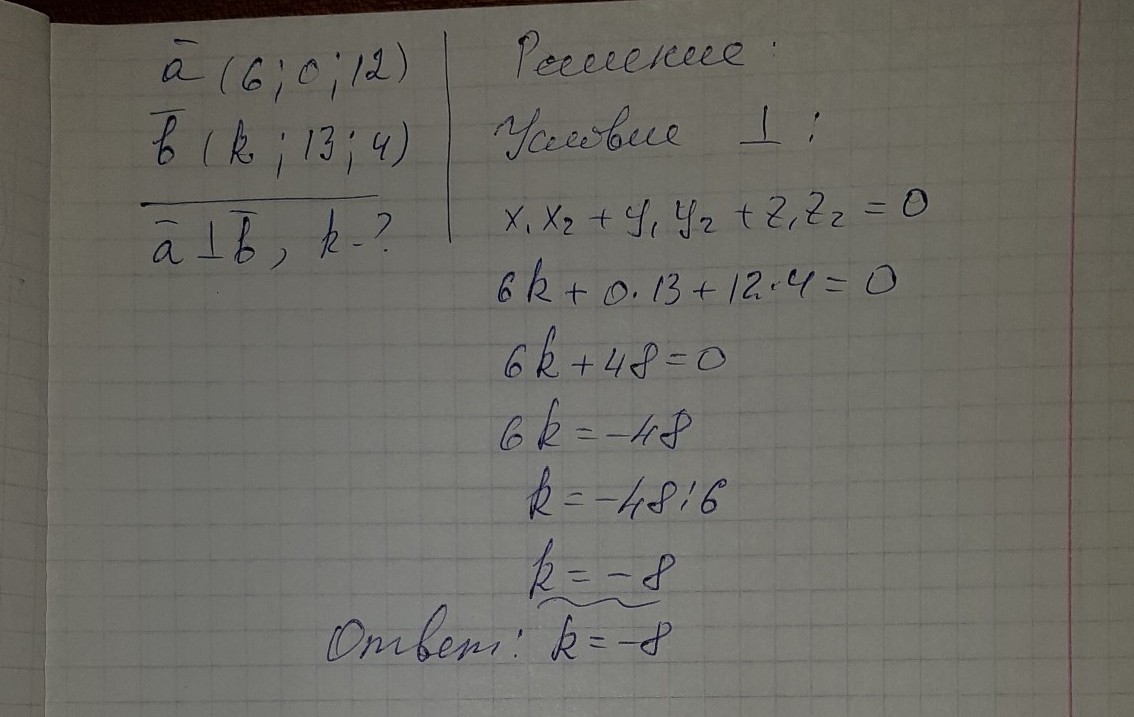 a̅ (6; 0; 12)
b̅ (k; 13; 4)
a̅ ⊥ b̅, k - ?
Решение:
Условие ⊥ :
x₁x₂ + y₁y₂ + z₁z₂ = 0
6k + 0·13 + 12·4 = 0
6k + 48 = 0
6k = -48
k = -48:6
k = -8
Ответ: k = -8